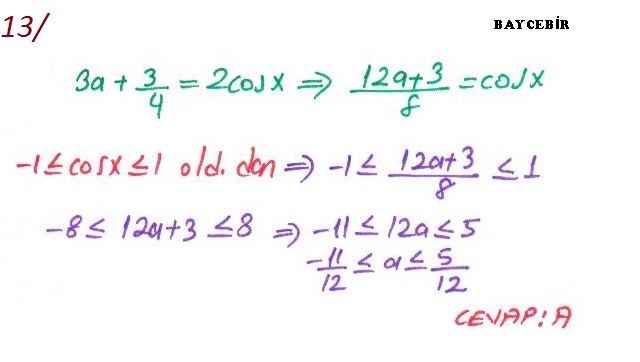 13/
BAYCEBİR
3a + 3/4 = 2cosx ⇒ (12a+3)/8 = cosx
-1 ≤ cosx ≤ 1 old. dan ⇒ -1 ≤ (12a+3)/8 ≤ 1
-8 ≤ 12a+3 ≤ 8 ⇒ -11 ≤ 12a ≤ 5
-11/12 ≤ a ≤ 5/12
CEVAP: A